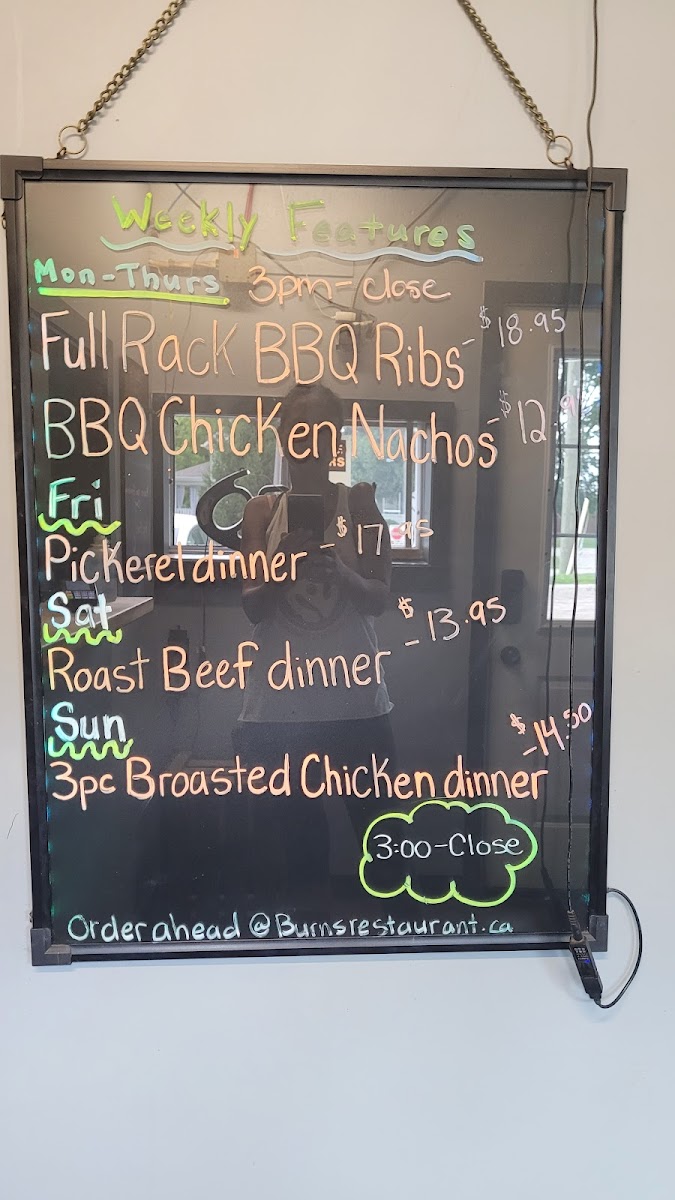 Weekly Features
Mon-Thurs 3pm-close
Full Rack BBQ Ribs - $18.95
BBQ Chicken Nachos - $12.95
Fri
Pickerel dinner - $17.95
Sat
Roast Beef dinner - $13.95
Sun
3pc Broasted Chicken dinner - $14.50
3:00-Close
Order ahead @Burnsrestaurant.ca